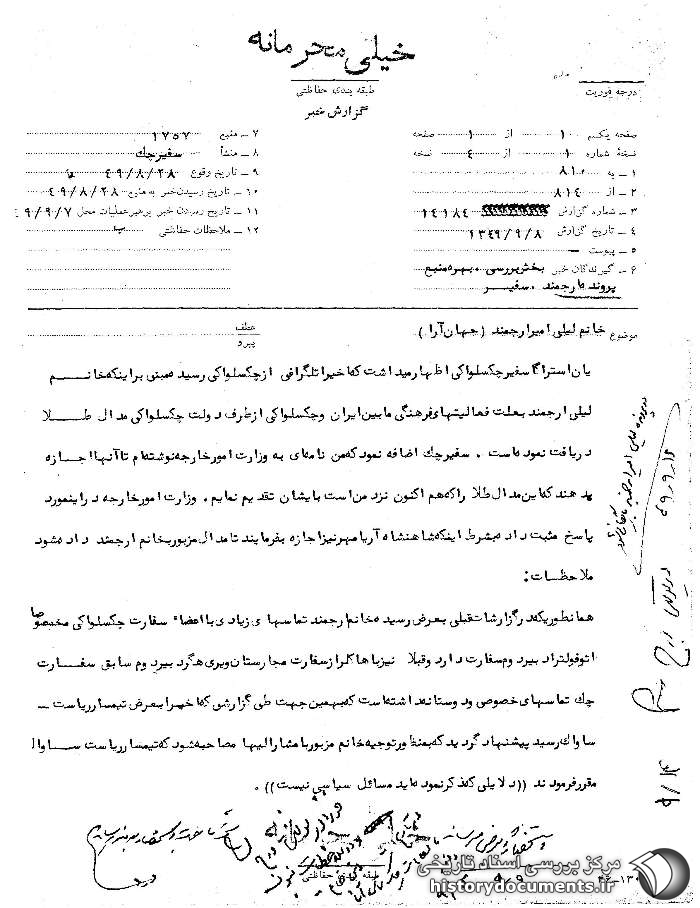 خیلی محرمانه
درجه فوریت
طبقه بندی حفاظتی
گزارش خبر
صفحه یکم ۱ از ۱ صفحه
نسخهٔ شماره ۱ از ۴ نسخه
۱ ـ به ۸۱۰
۲ ـ از ۸۱۴
۳ ـ شماره گزارش ۱۴۱۸۴
۴ ـ تاریخ گزارش ۱۳۴۹/۹/۸
۵ ـ پیوست ـ
۶ ـ گیرندگان خبر بخش بررسی ، بهره منبع
پرونده ارجمند ، سفیر
۷ ـ منبع ۱۷۵۷
۸ ـ منشأ سفیر چک
۹ ـ تاریخ وقوع ۴۹/۸/۲۸
۱۰ ـ تاریخ رسیدن خبر به منبع ۴۹/۸/۲۸
۱۱ ـ تاریخ رسیدن خبر برهبر عملیات محل ۴۹/۹/۷
۱۲ ـ ملاحظات حفاظتی
موضوع خانم لیلی امیرارجمند (جهان آرا)
عطف
پیرو
یان استراگا سفیر چکسلواکی اظهار میداشت که اخیرا تلگرافی از چکسلواکی رسیده مبنی بر اینکه خانم
لیلی ارجمند بعلت فعالیتهای فرهنگی مابین ایران و چکسلواکی از طرف دولت چکسلواکی مدال طلا
دریافت نموده است . سفیر چک اضافه نمود که من نامه ای به وزارت امور خارجه نوشته ام تا آنها اجازه
بدهند که این مدال طلا را که هم اکنون نزد من است بایشان تقدیم نمایم . وزارت امور خارجه در اینمورد
پاسخ مثبت داده بشرط اینکه شاهنشاه آریامهر نیز اجازه بفرمایند تا مدال مزبور بخانم ارجمند داده شود
ملاحظات :
همانطوریکه در گزارشات قبلی بعرض رسیده خانم ارجمند تماسهای زیادی با اعضاء سفارت چکسلواکی مخصوصا
اتوفولتراد بیر دوم سفارت دارد و قبلا نیز با هاکلر از سفارت مجارستان و یری هگر دبیر دوم سابق سفارت
چک تماسهای خصوصی و دوستانه داشته است که بهمین جهت طی گزارشی که اخیرا بعرض تیمسار ریاست ـ
ساواک رسید پیشنهاد گردید که بمنظور توجیه خانم مزبور با مشارالیها مصاحبه شود که تیمسار ریاست ساواک
مقرر فرمودند ((دلایلی که ذکر نموده اید مسائل سیاسی نیست)) .
طبقه بندی حفاظتی
مرکز بررسی اسناد تاریخی
historydocuments.ir